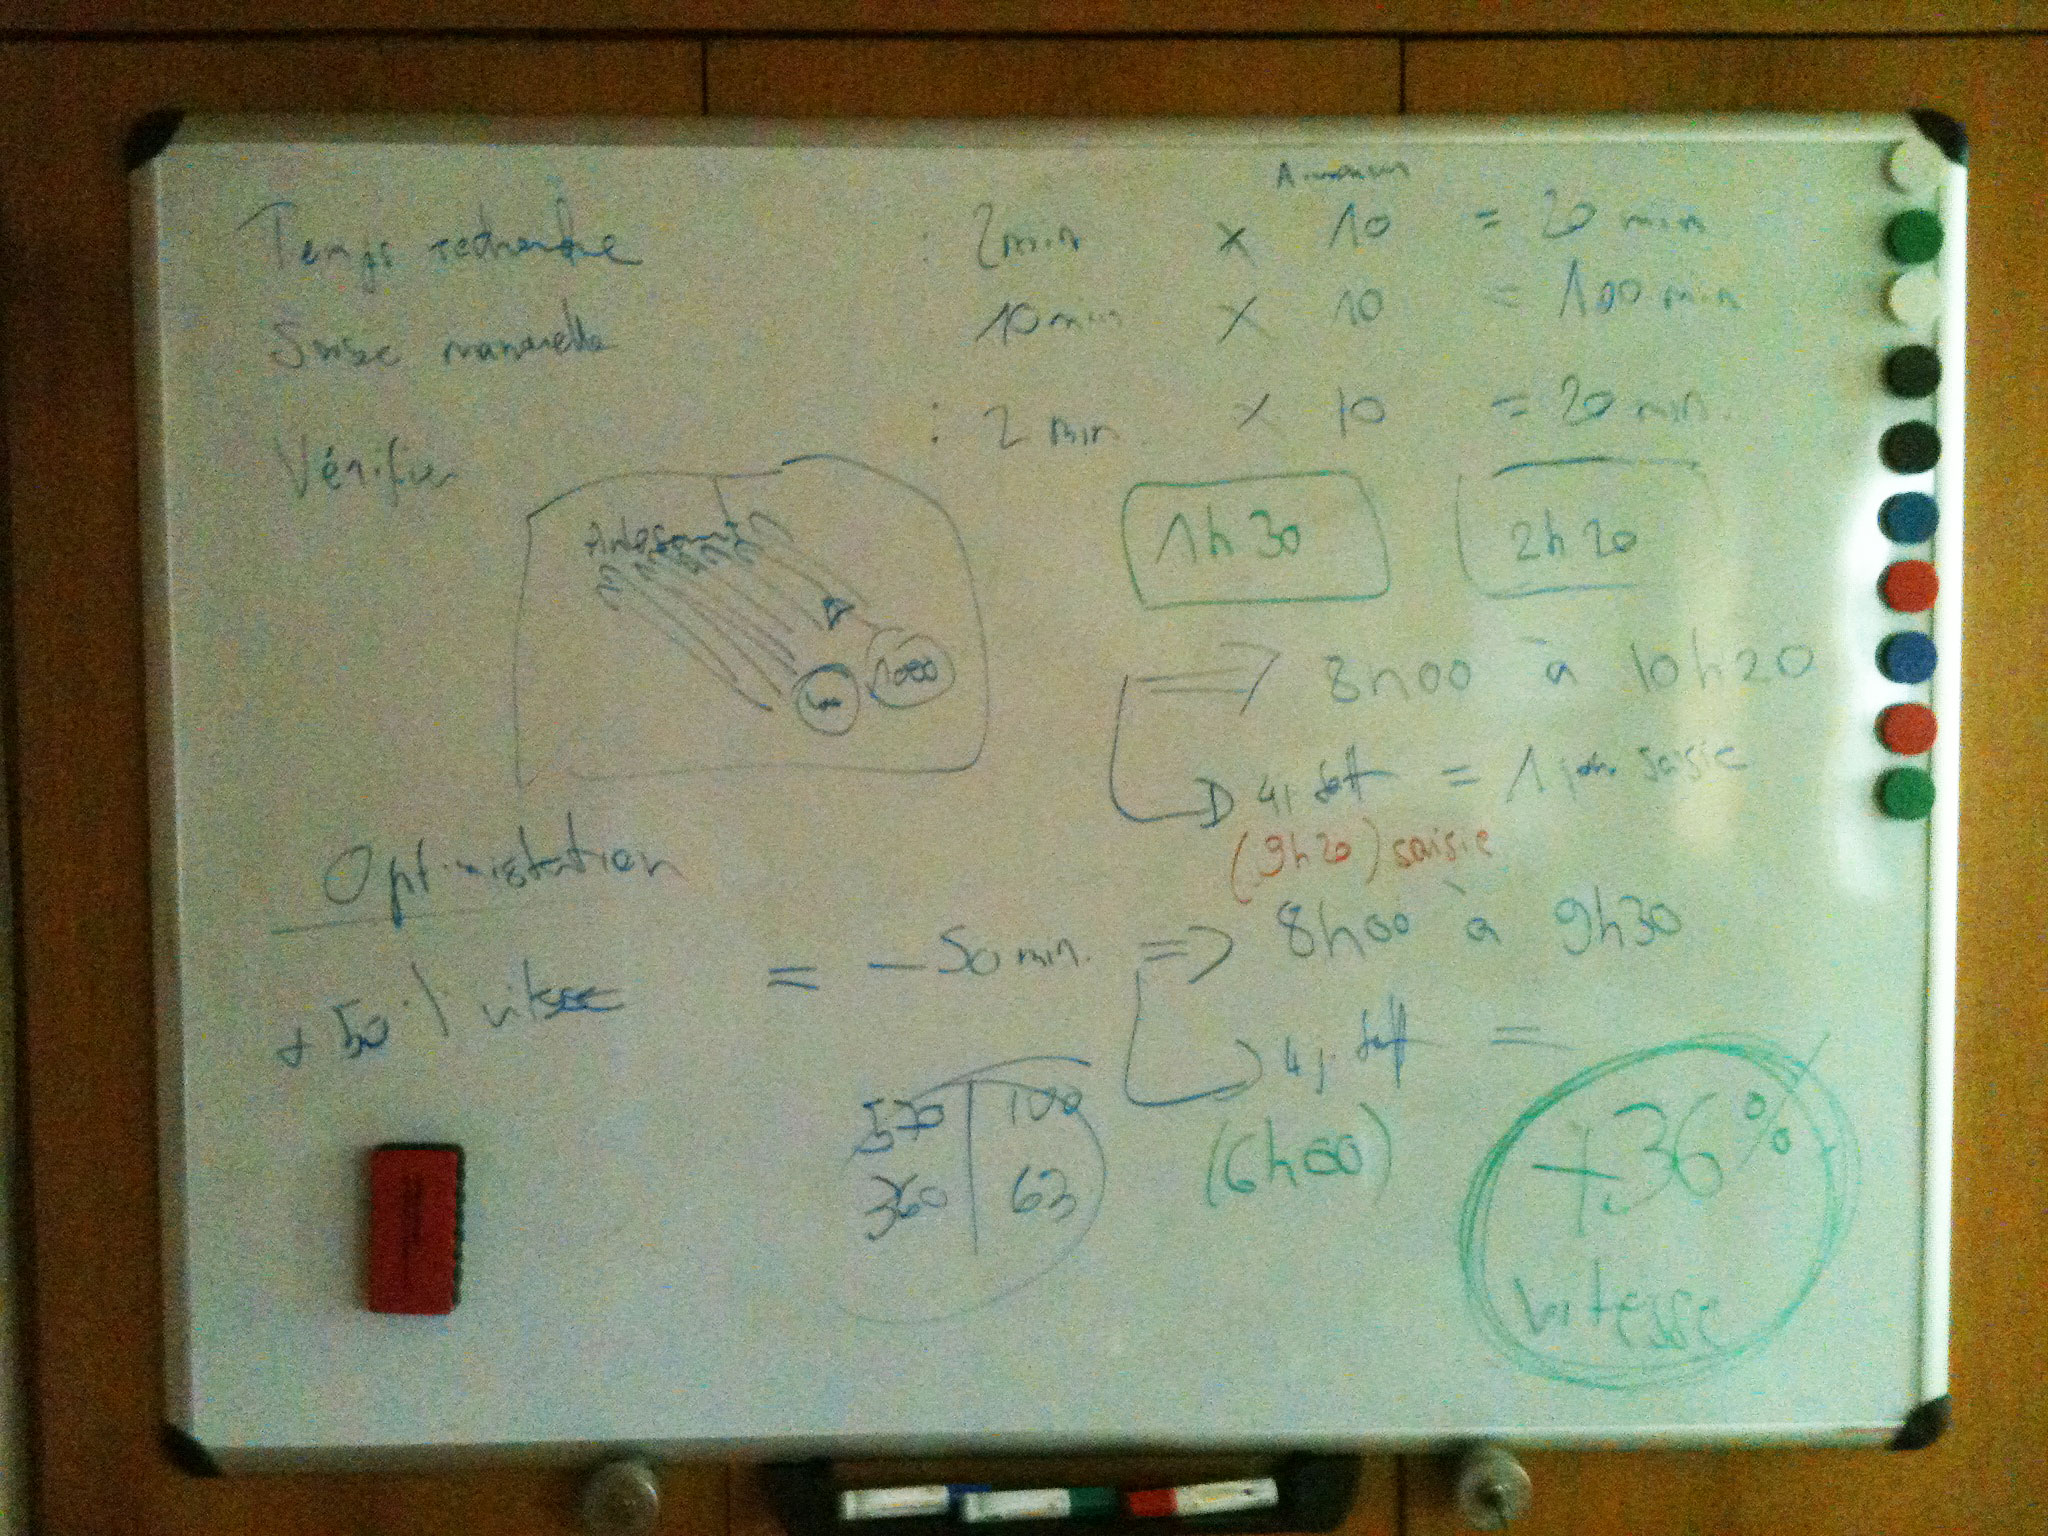 A minimum
Temps recherche : 2 min x 10 = 20 min
Saisie manuelle 10 min x 10 = 100 min
Vérifier : 2 min. x 10 = 20 min.
1h30 2h20
1000
=> 8h00 à 10h20
4j = 1 saisie
(9h20) saisie
Optimistation
+ 50 % vitesse = - 50 min. => 8h00 à 9h30
4j. =
570 100
360 63
(6h00)
+ 36 %
vitesse